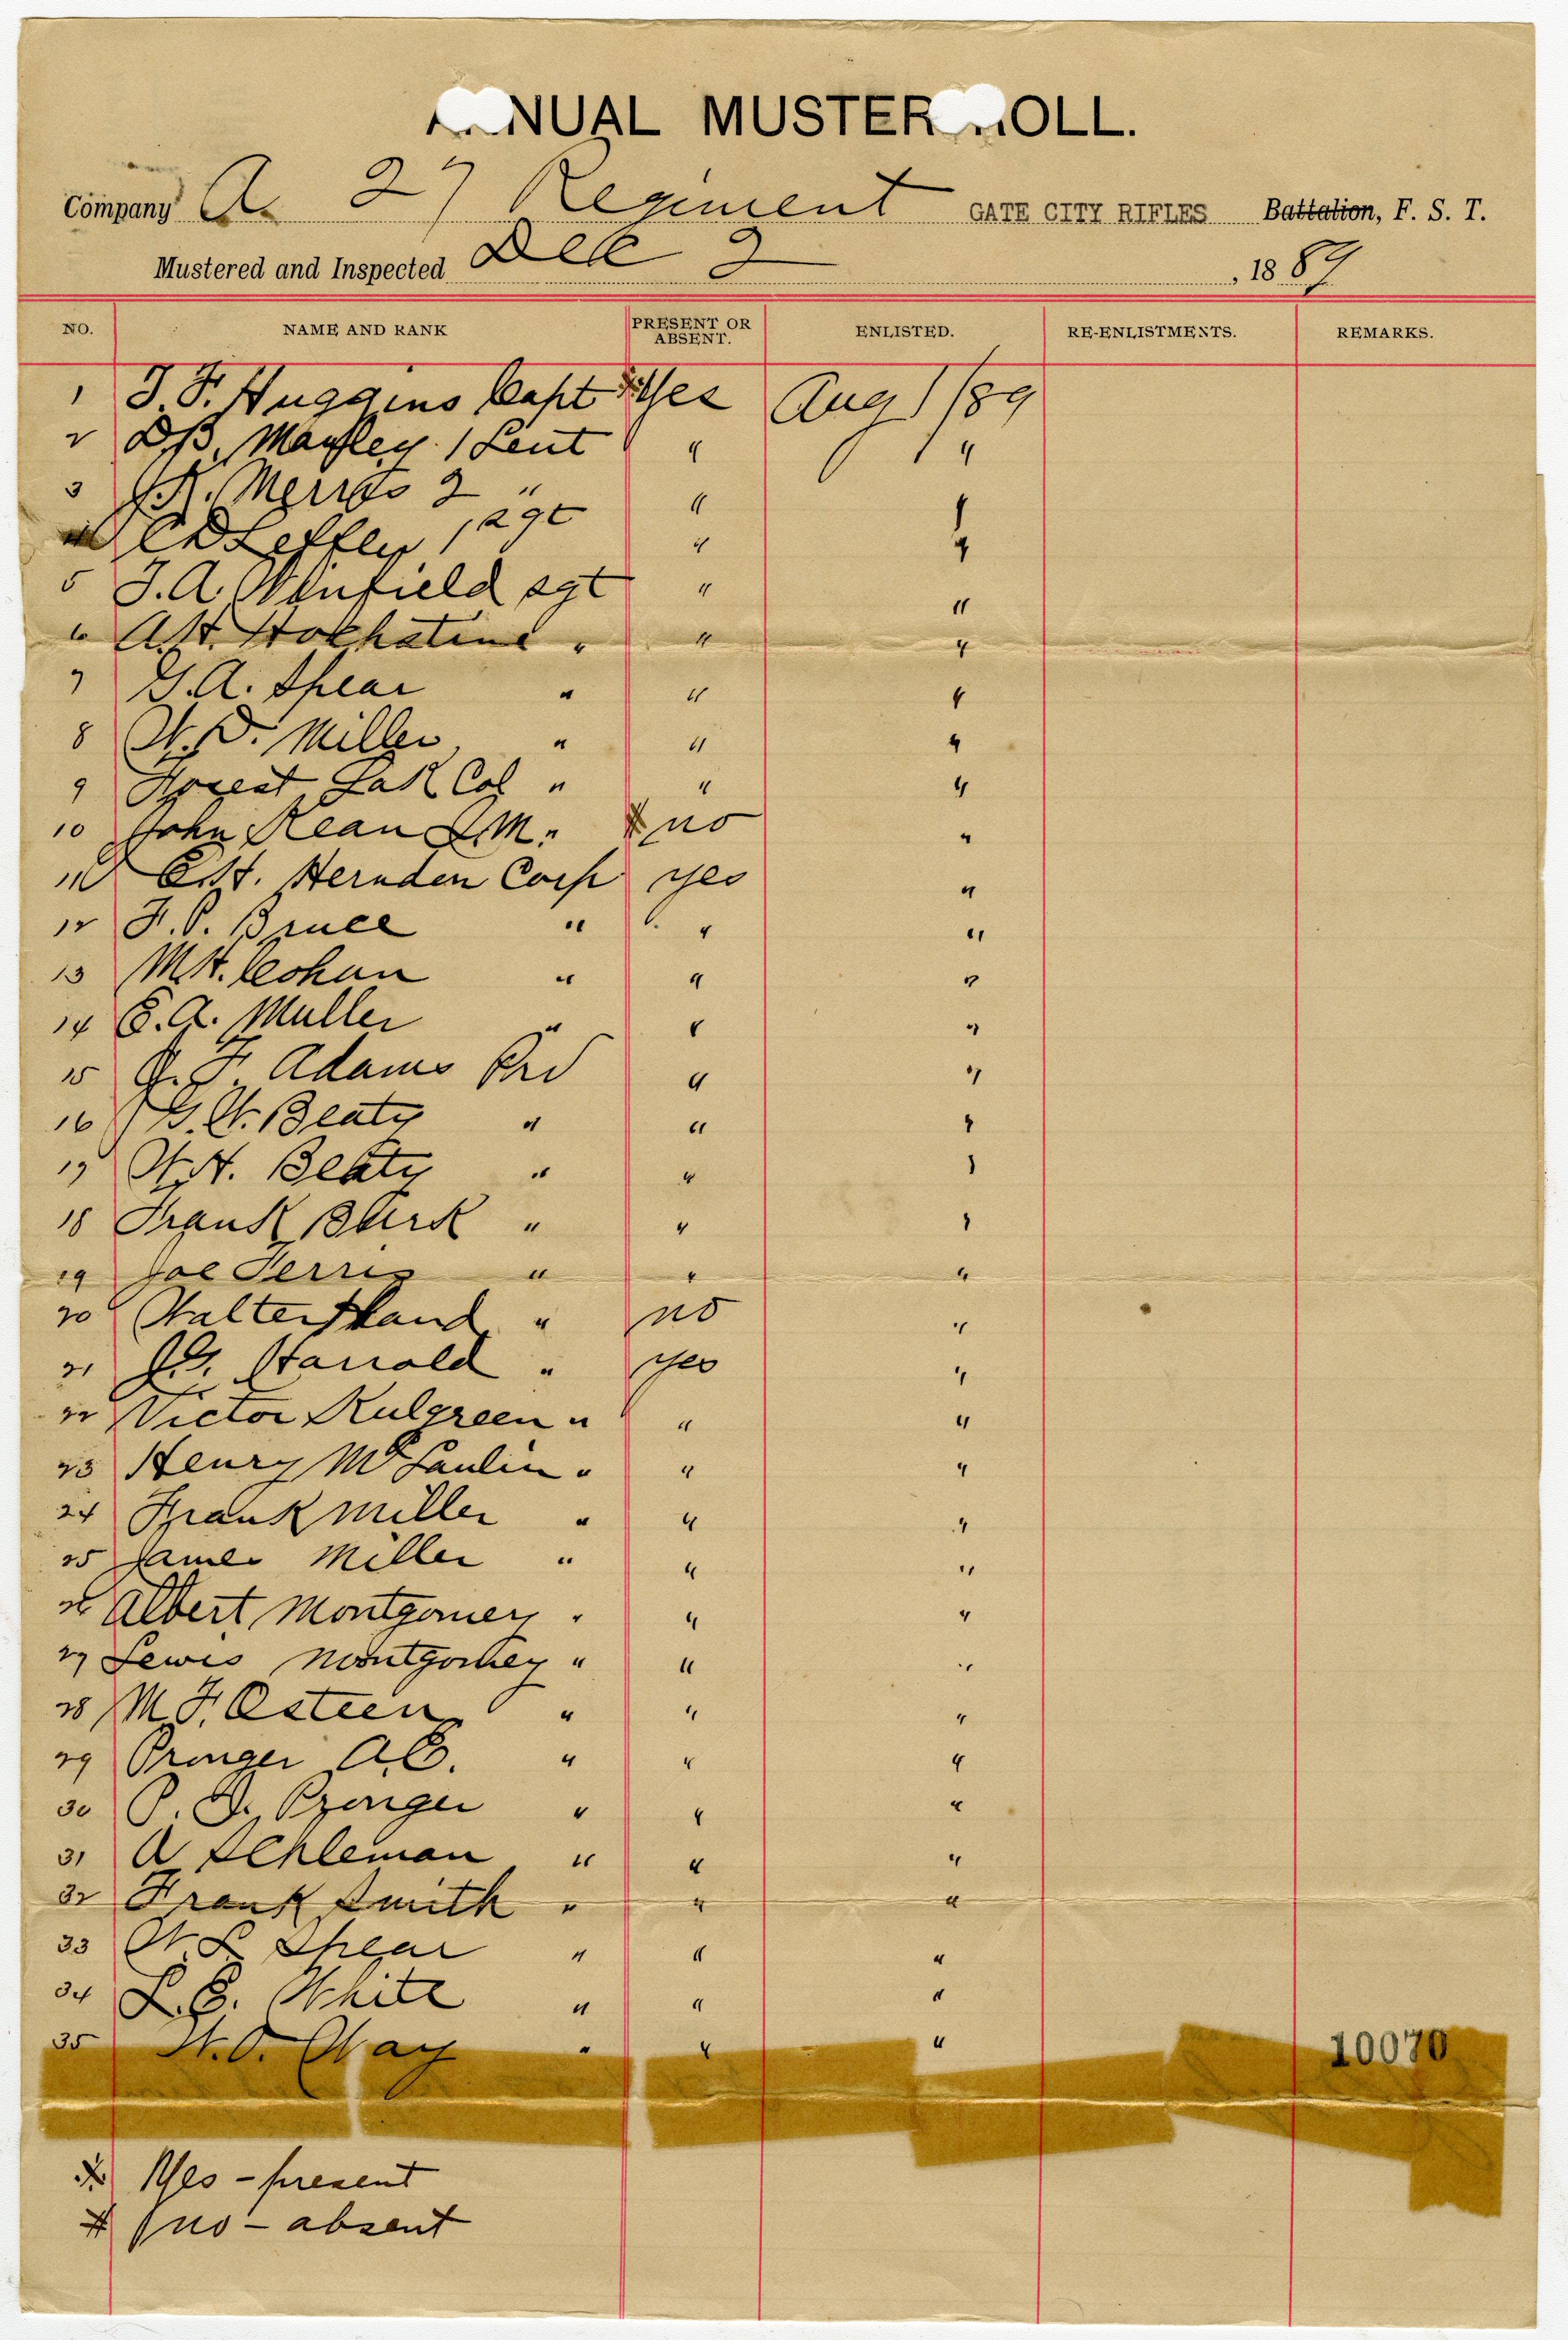 ANNUAL MUSTER ROLL.
Company A. 27 Regiment GATE CITY RIFLES Battalion, F. S. T.
Mustered and Inspected Dec 2, 1889
NO. NAME AND RANK PRESENT OR ABSENT. ENLISTED. RE-ENLISTMENTS. REMARKS.
1 J. F. Huggins Capt Yes Aug 1/89
2 1 Leut " "
3 2 " " "
4 1 sgt " "
5 J. A. Winfield sgt " "
6 A. H. " " "
7 G. A. Spear " " "
8 W. D. Miller " " "
9 Forest Col " " "
10 John Kean Q.M. " # no "
11 E. H. Hernden Corp yes "
12 F. P. Bruce " " "
13 M. H. Cohun " " "
14 E. A. Muller " " "
15 J. F. Adams Prv " "
16 G. W. Beaty " " "
17 W. H. Beaty " " "
18 Frank " " "
19 Joe Ferris " " "
20 Walter Hand " no "
21 J. G. Harrold " yes "
22 Victor Kulgreen " " "
23 Henry McLaulin " " "
24 Frank Miller " " "
25 James Miller " " "
26 Albert Montgomery " " "
27 Lewis Montgomery " " "
28 M. F. Osteen " " "
29 Pringer A. E. " " "
30 P. D. " " "
31 A Schleman " " "
32 Frank Smith " " "
33 W. L Spear " " "
34 L. E. White " " "
35 W. O. Way " " "
10070
Yes - present
# no - absent